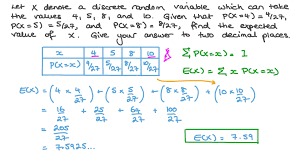 Let X denote a discrete random variable which can take
the values 4, 5, 8, and 10. Given that P(X=4) = 4/27,
P(X=5) = 5/27, and P(X=8) = 8/27, find the expected
value of X. Give your answer to two decimal places.
x 4 5 8 10
P(X=x) 4/27 5/27 8/27 10/27
Σ P(X=x) = 1
E(X) = Σ x P(X=x)
E(X) = (4 × 4/27) + (5 × 5/27) + (8 × 8/27) + (10 × 10/27)
= 16/27 + 25/27 + 64/27 + 100/27
= 205/27
= 7.5925...
E(X) = 7.59